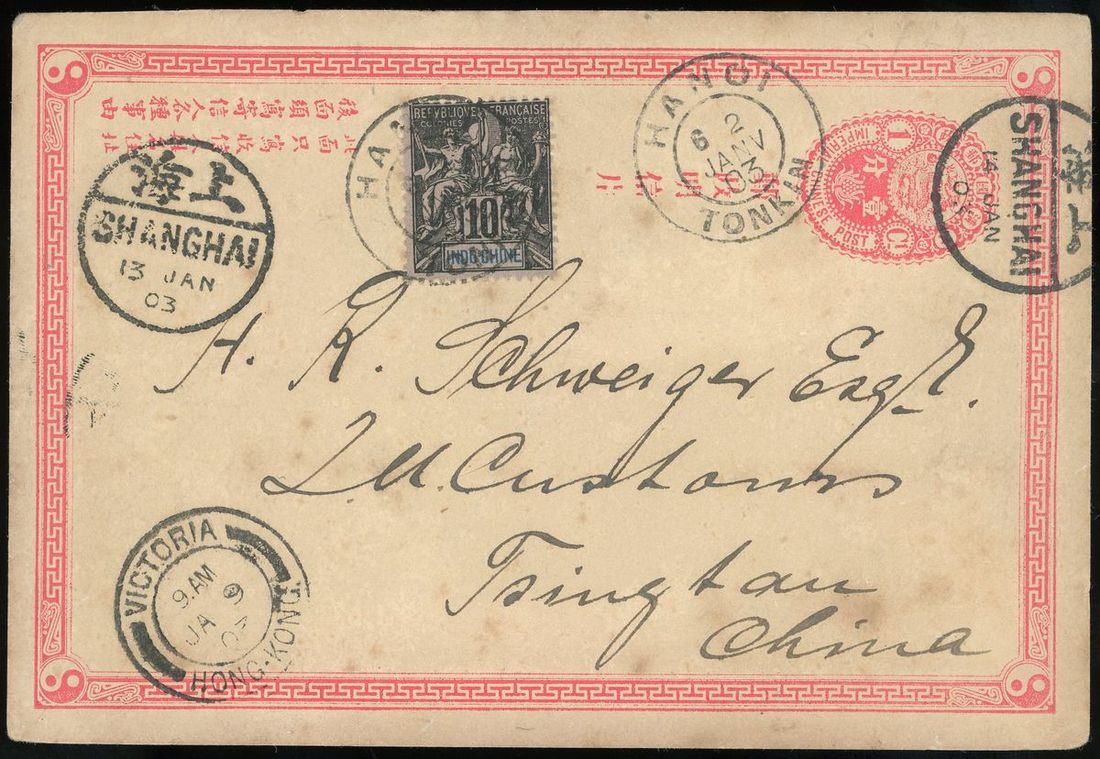 後面須寫寄信人各種事由
此面只寫收信人名姓住址
RÉPUBLIQUE FRANÇAISE
COLONIES POSTES
10
INDO-CHINE
HANOI
6 2
JANV
03
TONKIN
IMPERIAL CHINESE POST
1
壹
Ct
上海
SHANGHAI
13 JAN
03
上海
SHANGHAI
14 JAN
03
H. R. Schweiger Esq.
I. M. Customs
Tsingtau
China
VICTORIA
9.AM
JA 9
03
HONG-KONG